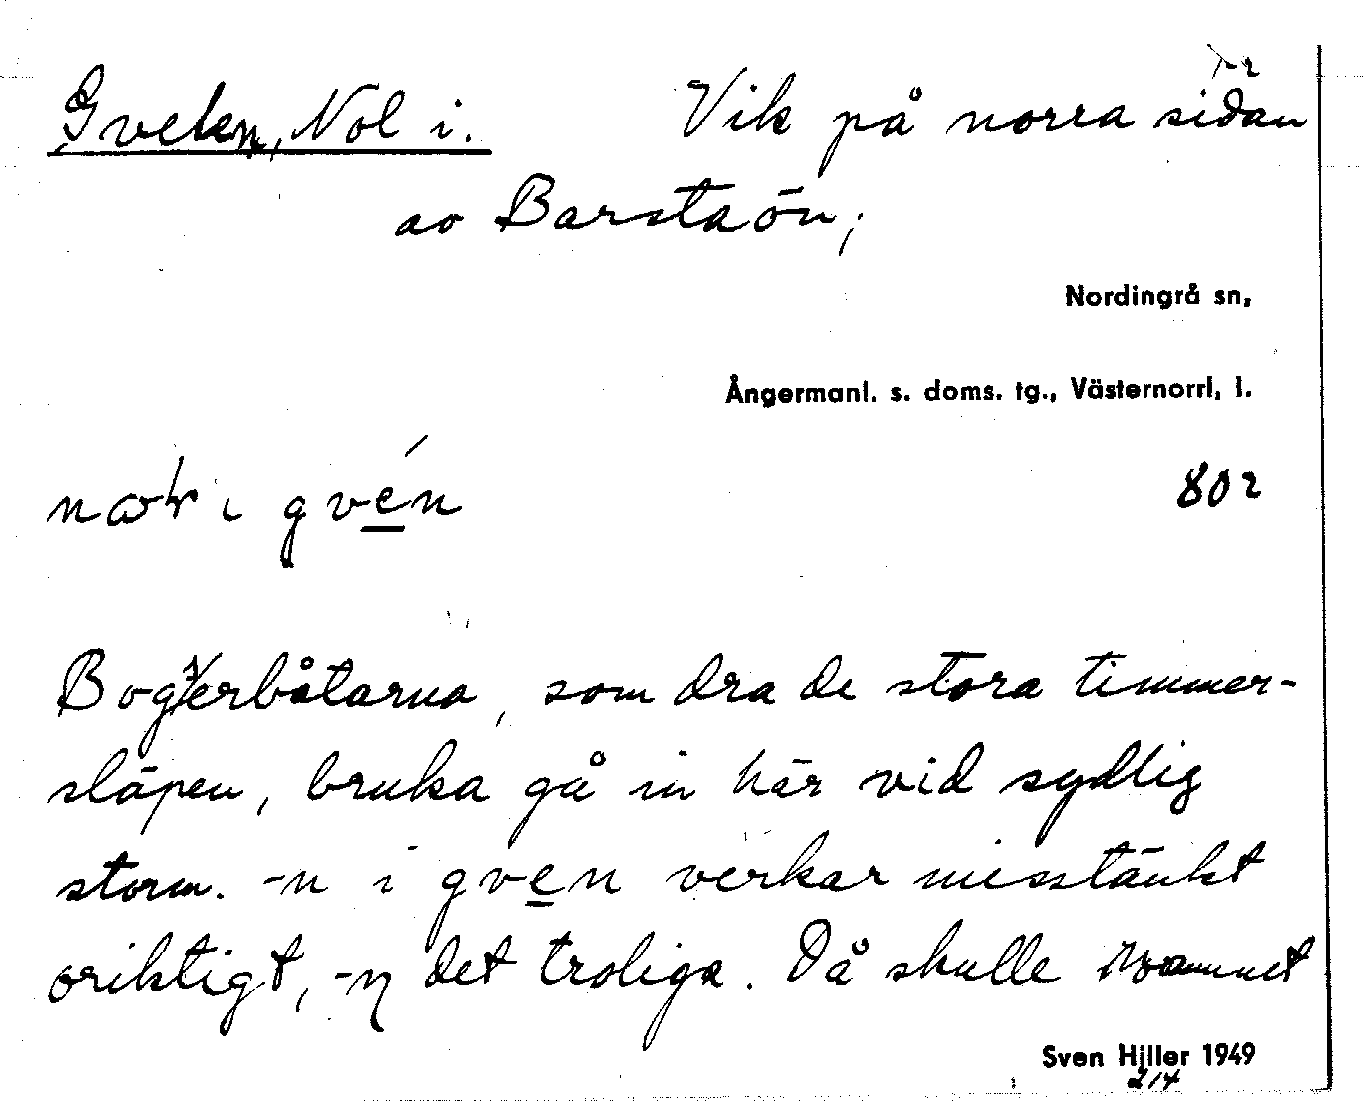 Gveken, Nol i. Vik på norra sidan
av Barstaön;
Nordingrå sn,
Ångermanl. s. doms. tg., Västernorrl, l.
i gvén 802
Bogserbåtarna, som dra de stora timmer-
släpen, bruka gå in här vid sydlig
storm. -n i gven verkar misstänkt
oriktigt, -ŋ det troliga. Då skulle namnet
Sven Hiller 1949
214